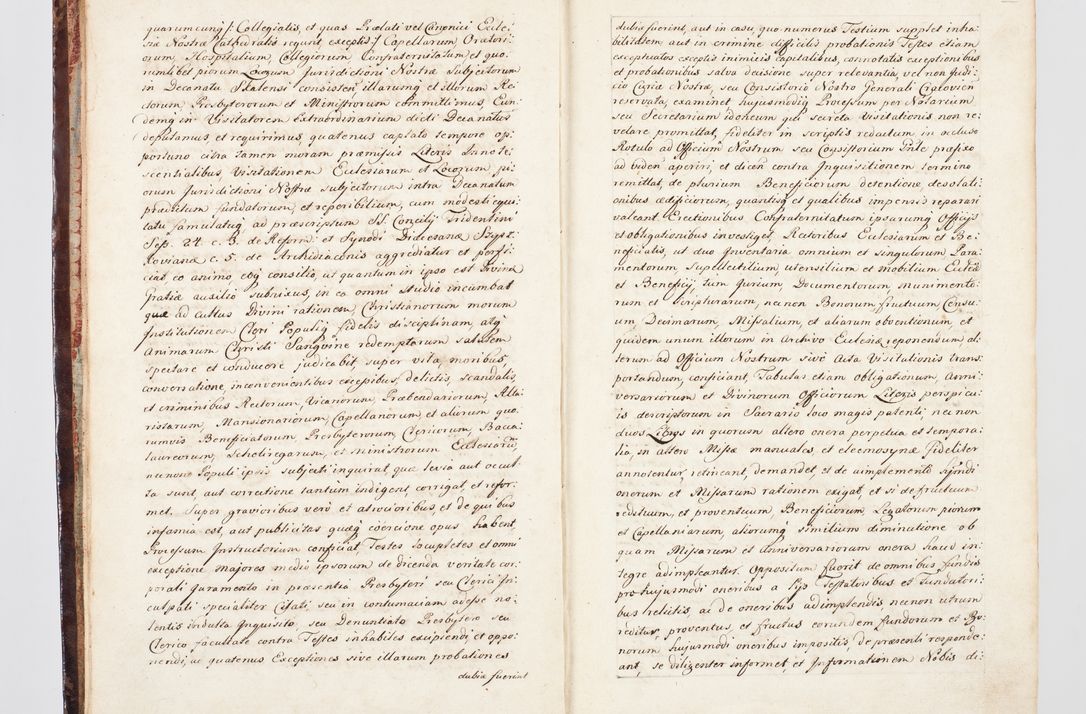 quarumcunq; /: Collegiatis, et quas Prælati vel Canonici Eccle:
siæ Nostræ Cathedralis regunt exceptis :/ Capellarum Orator:
iorum, Hospitalium, Collegiorum Confraternitatum et quo
rumlibet piorum Locorum Jurisdictioni Nostræ subjectorum
in Decanatu Skalensi consisten, illarumq et illorum Re
ctorum Presbyterorum et Ministrorum committimus, Eun
demq in Visitatorem Extraordinarium dicti Decanatus
deputamus, et requirimus, quatenus captato tempore op:
portuno citra tamen moram præmissis Literis Innote:
scentialibus, Visitationem Ecclesiarum et Locorum pi:
orum Jurisdictioni Nostræ subjectorum intra Decanatum
prædictum fundatorum, et reperibilium, cum modesti equi:
tatu famulatuq ad præscriptum SS. Concilij Tridentini
Sess. 24 c. 3. de Reform: et Synodi Diæcesanæ Szysz:
kovianæ c. 5. de Archidiaconis aggrediatur et perfi:
ciat eo animo, eoq consilio, ut quantum in ipso est Divina
Gratiæ auxilio subnixus, in ea omni studio incumbat
quæ ad cultus Divini rationem, Christianorum morum
Institutionem Cleri Populiq fidelis disciplinam, atq
Animarum Christi Sanguine redemptarum salutem
spectare et conducere judicabit, super vita, moribus,
conversatione, inconvenientibus excepibus, delictis, scandalis,
et criminibus Rectorum, Vicariorum, Præbendariorum, Alta
ristarum, Mansionariorum, Capellanorum et aliorum quo
rumvis Beneficiatorum, Presbyterorum, Clericorum, Bacca
laureorum, Scholiregarum, et ministrorum Ecclesiarum,
necnon Populi ipsis subjecti inquirat, quæ levia aut occul:
ta sunt, aut correctione tantum indigent, corrigat, et refor:
met. Super gravioribus verò et atrocioribus, et de quibus
infamia est, aut publicitas quæq coercione opus habent,
Processum Instructorium conficiat, Testes locupletes et omni
exceptione majores medio ipsorum de dicenda veritate cor:
porali Juramento in præsentia Presbyteri seu Clerici In:
culpati specialiter Citati, seu in contumaciam adesse no:
lentis indulta Inquisito, seu Denuntiato Presbytero seu
Clerico facultate contra Testes inhabiles excipiendi, et oppo:
nendi, ac quatenus Exceptiones sive illarum probationes
dubiæ fuerint
dubiæ fuerint, aut in casu, quo numerus Testium supplet inha
bilitatem aut in crimine difficilis probationis Testes etiam
exceptuatos exceptis inimicis capitalibus, connotatis exceptionibus
et probationibus salva decisione super relevantia, vel non Judi:
cio Curiæ Nostræ, seu Consistorio Nostro Generali Cracovien
reservata, examinet hujusmodiq Processum per Notarium
seu Secretarium idoneum qui secreta Visitationis non re:
velare promittat, fideliter in scriptis redactum, in occluso
Rotulo ad Officium Nostrum seu Consistorium Parte præfixo
ad viden aperiri, et dicen contra Inquisitionem termino
remittat, de plurium Beneficiorum detentione, desolati:
onibus ædificiorum, quantisq et qualibus impensis reparari
valeant. Erectionibus Confraternitatum ipsarumq Officijs
et obligationibus investiget, Rectoribus Ecclesiarum et Be:
neficiatis, ut duo Inventaria omnium et singulorum Para:
mentorum, Supellectilium, utensilium et mobilium Ecclæ
et Beneficij tum Jurium, Documentorum, munimento:
rum et Scripturarum, necnon Bonorum fructuum Censu:
um, Decimarum, Missalium, et aliarum obventionum, et
quidem unum illorum in Archivo Ecclesiæ reponendum, al:
terum ad Officium Nostrum sive Acta Visitationis trans:
portandum, conficiant, Tabulas etiam obligationum, Anni:
versariorum et Divinorum Officiorum Literis perspicu:
is descriptorum in Sacrario loco magis patenti, nec non
duos Libros in quorum altero onera perpetua et tempora:
lia, in altero Missæ manuales, et eleemosynæ fideliter
annotentur, retineant, demandet, et de uimplemento ejusmodi
onerum et Missarum rationem exigat, et si de fructuum
redituum, et proventuum Beneficiorum, Legatorum piorum
et Capellaniarum, aliorumq similium diminutione ob
quam Missarum et Anniversariorum onera haud in:
tegre adimpleantur. Oppositum fuerit de omnibus fundis
pro hujusmodi oneribus à Pijs Testatoribus et Fundatori:
bus relictis, ac de oneribus adimplendis necnon utrum
reditus, proventus, et fructus eorundem fundorum et Bo:
norum hujusmodi oneribus impositis, de præsenti responde:
ant, se diligenter informet, et Informationem Nobis di: